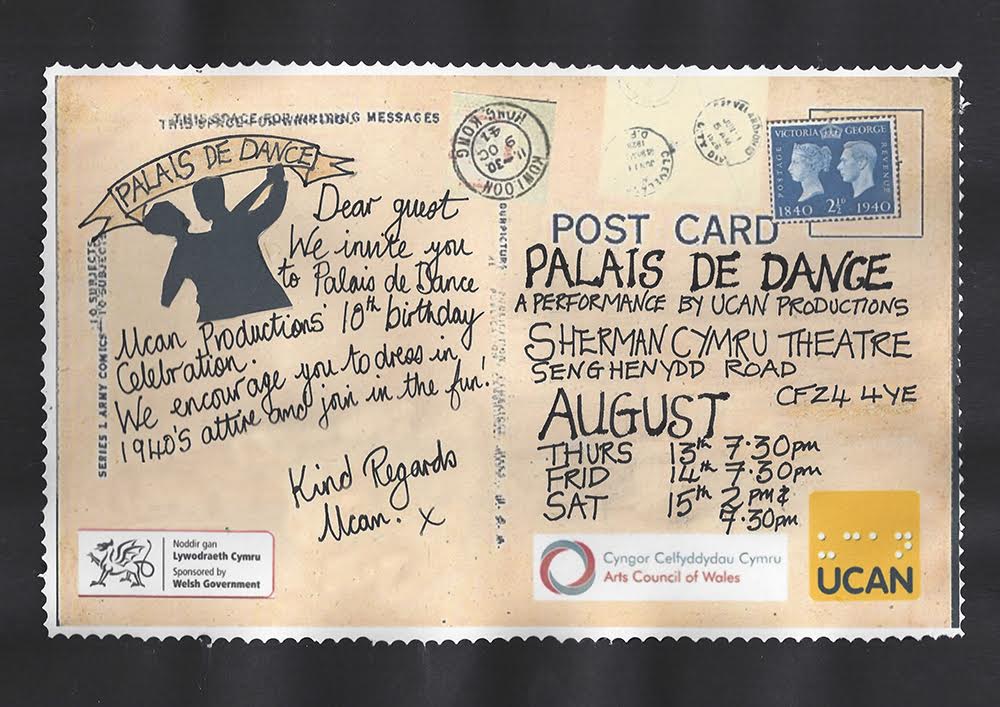 THIS SPACE FOR WRITING MESSAGES
PALAIS DE DANCE
Dear guest
We invite you
to Palais de Dance
Ucan Productions' 10th birthday
Celebration.
We encourage you to dress in
1940's attire and join in the fun!
Kind Regards
Ucan. x
SERIES 1 ARMY COMICS
TO SUBJECTS
Noddir gan
Lywodraeth Cymru
Sponsored by
Welsh Government
HONG KONG
KOWLOON
11-30
9 OC
VICTORIA GEORGE
POSTAGE
REVENUE
1840 2½D 1940
POST CARD
PALAIS DE DANCE
A PERFORMANCE BY UCAN PRODUCTIONS
SHERMAN CYMRU THEATRE
SENGHENYDD ROAD
CF24 4YE
AUGUST
THURS 13th 7.30pm
FRID 14th 7.30pm
SAT 15th 2pm &
7.30pm
Cyngor Celfyddydau Cymru
Arts Council of Wales
UCAN